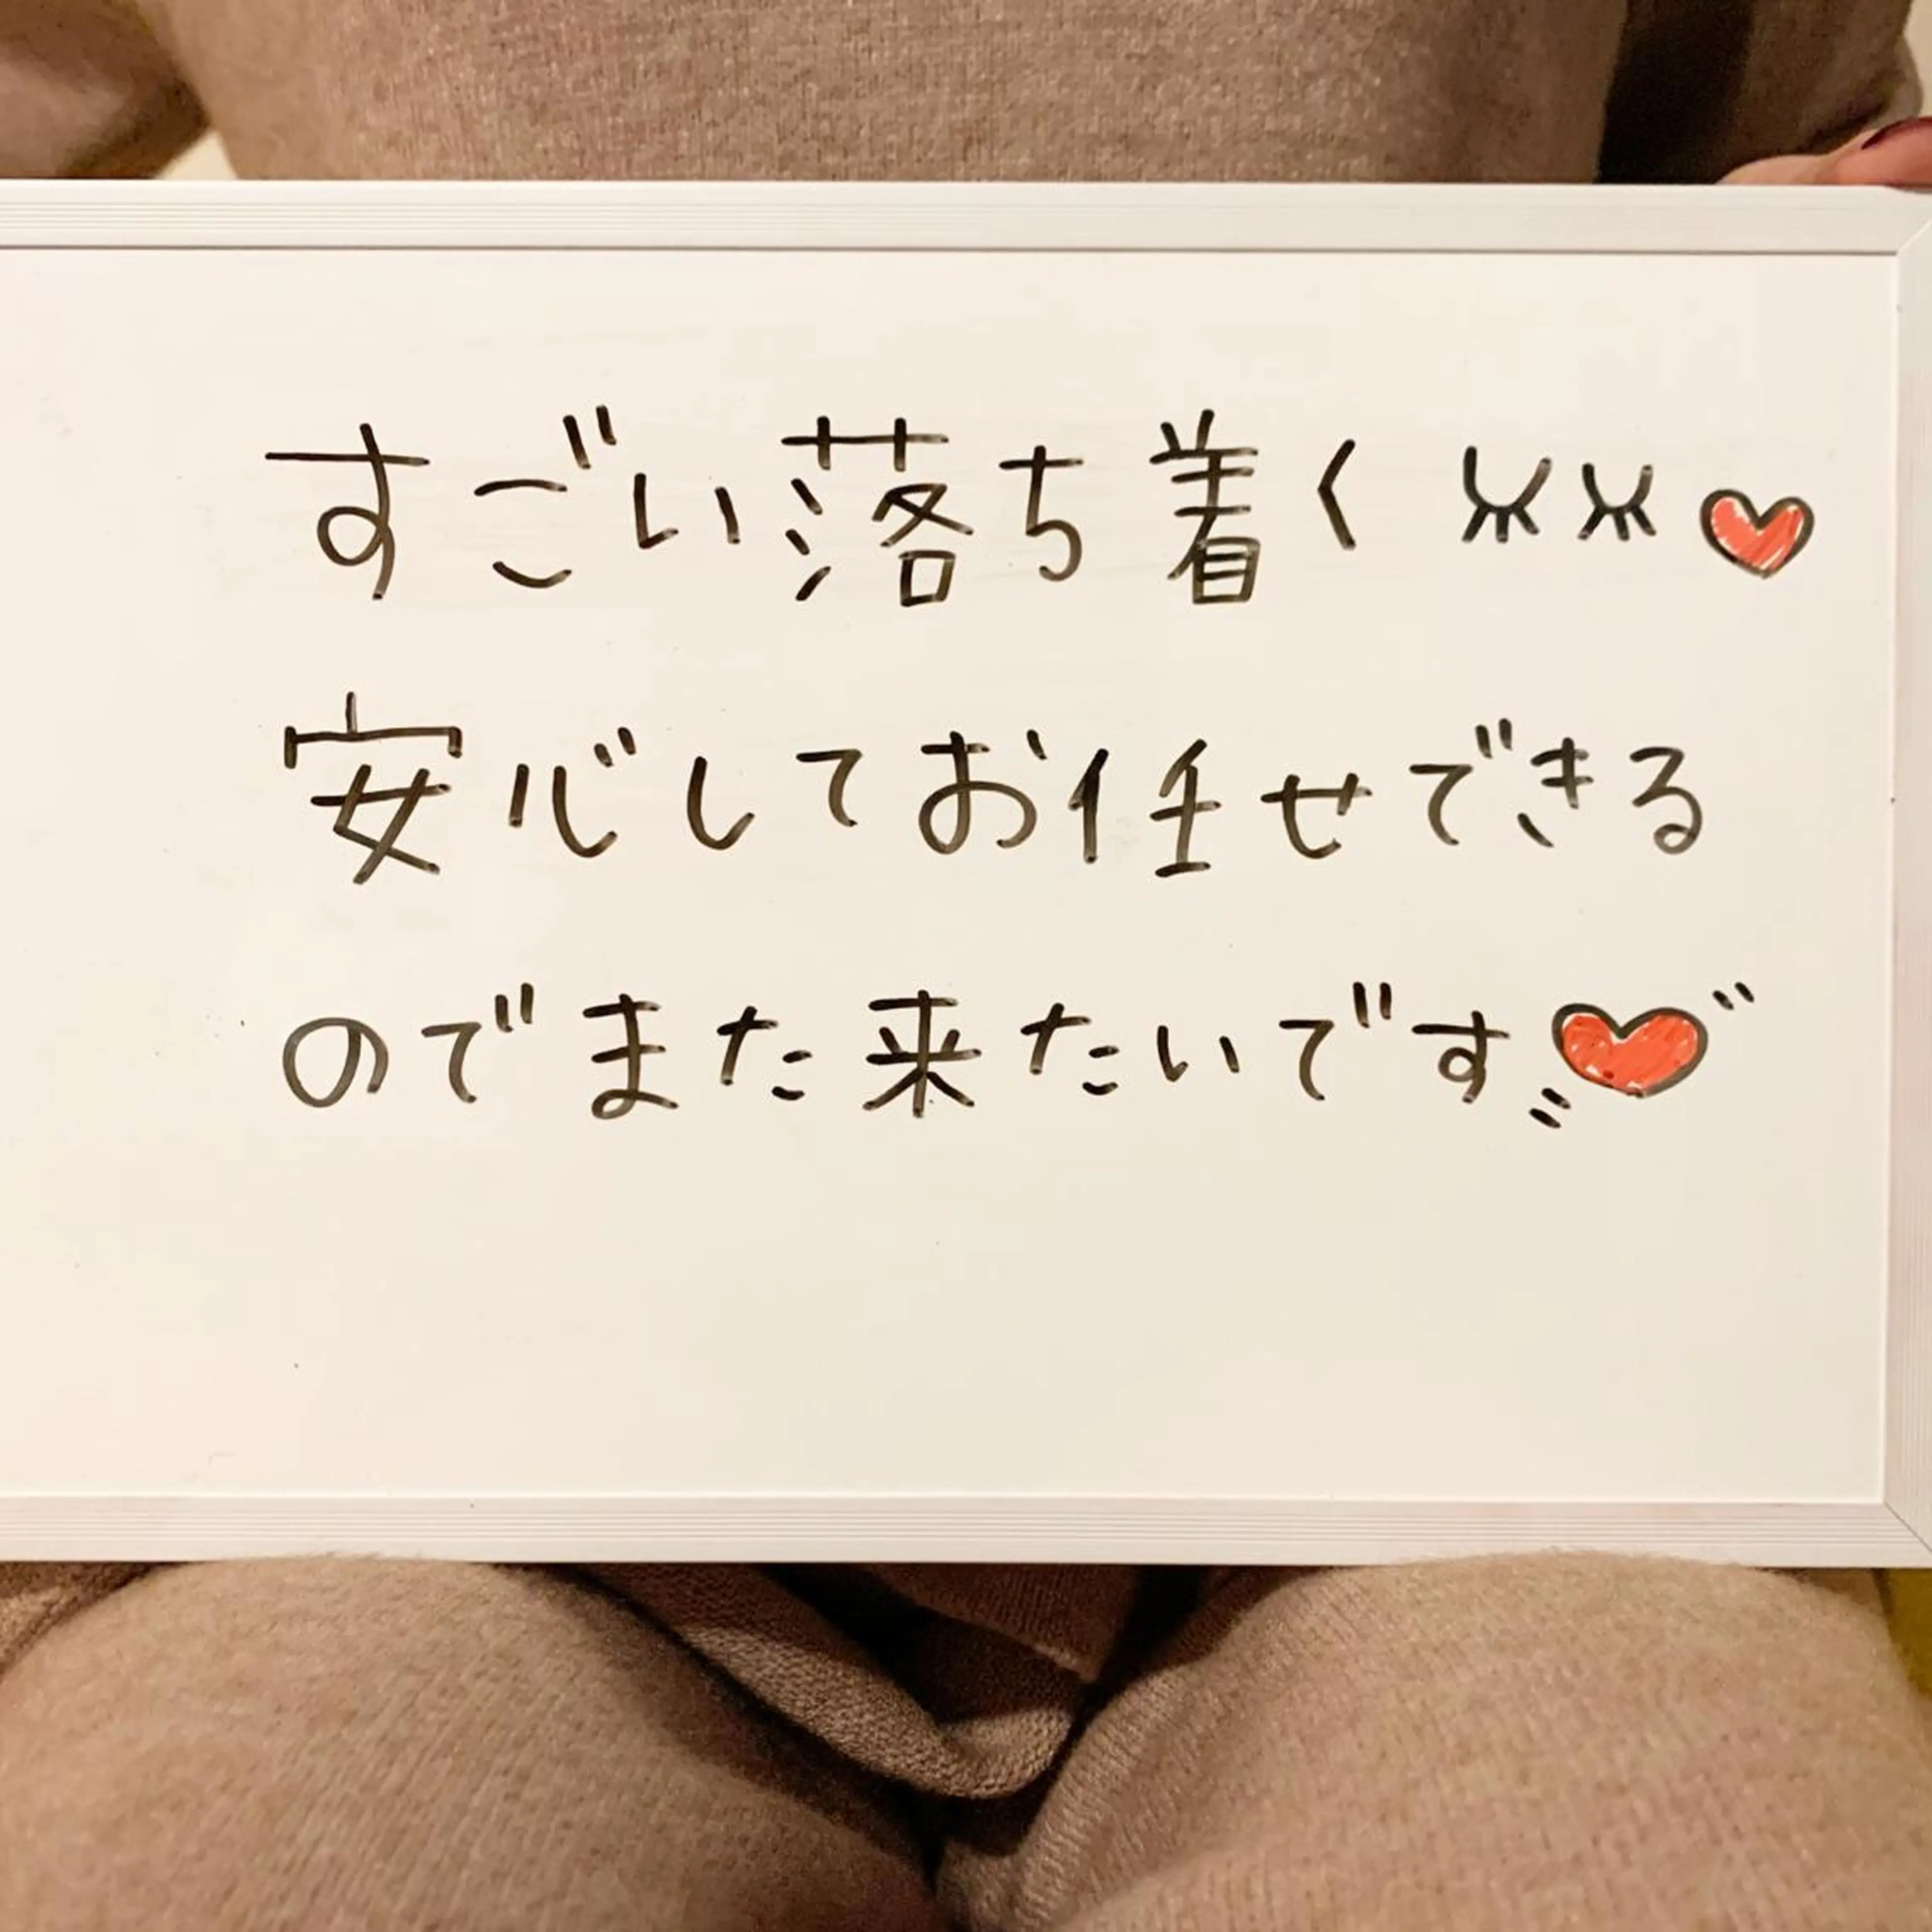 すごい落ち着く
安心してお任せできる
のでまた来たいです